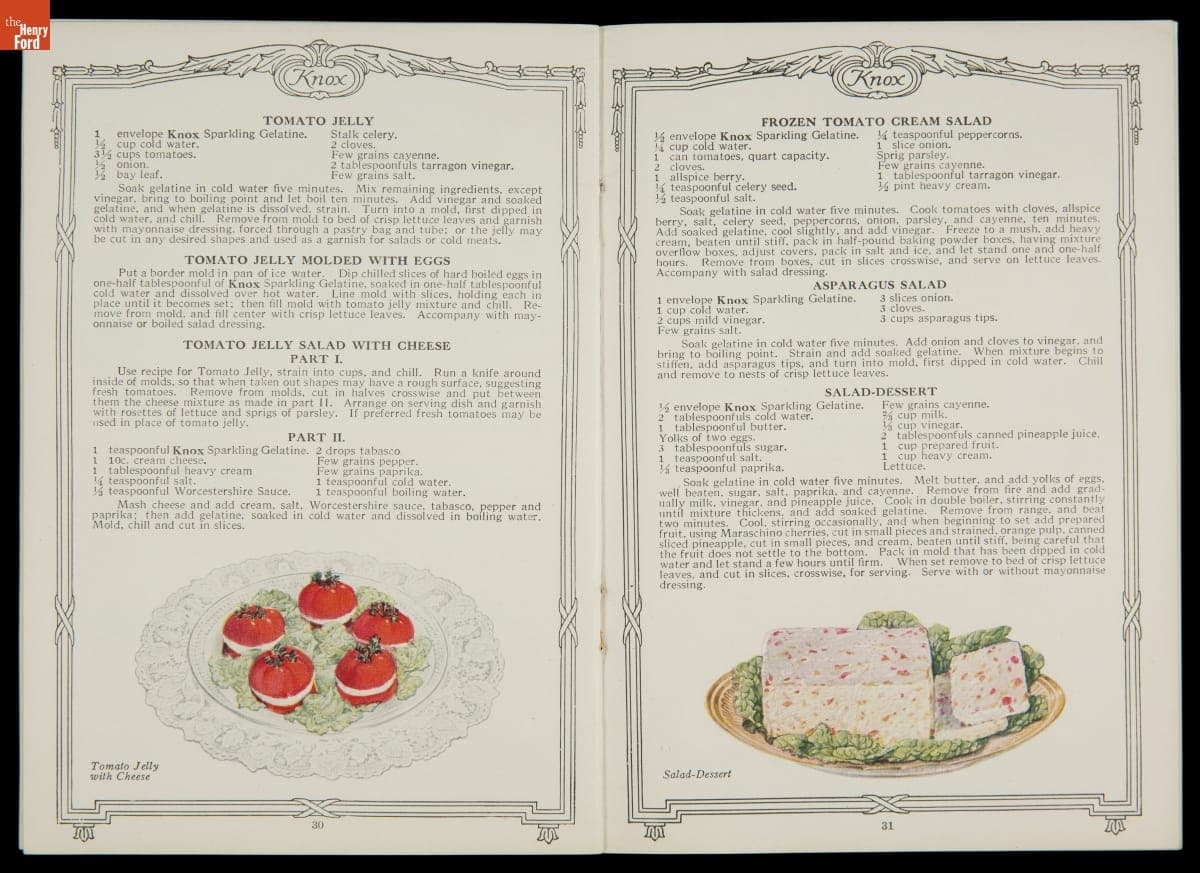 the
Henry
Ford
Knox
TOMATO JELLY
1 envelope Knox Sparkling Gelatine. Stalk celery.
½ cup cold water. 2 cloves.
3½ cups tomatoes. Few grains cayenne.
½ onion. 2 tablespoonfuls tarragon vinegar.
½ bay leaf. Few grains salt.
Soak gelatine in cold water five minutes. Mix remaining ingredients, except
vinegar, bring to boiling point and let boil ten minutes. Add vinegar and soaked
gelatine, and when gelatine is dissolved, strain. Turn into a mold, first dipped in
cold water, and chill. Remove from mold to bed of crisp lettuce leaves and garnish
with mayonnaise dressing, forced through a pastry bag and tube; or the jelly may
be cut in any desired shapes and used as a garnish for salads or cold meats.
TOMATO JELLY MOLDED WITH EGGS
Put a border mold in pan of ice water. Dip chilled slices of hard boiled eggs in
one-half tablespoonful of Knox Sparkling Gelatine, soaked in one-half tablespoonful
cold water and dissolved over hot water. Line mold with slices, holding each in
place until it becomes set; then fill mold with tomato jelly mixture and chill. Re-
move from mold, and fill center with crisp lettuce leaves. Accompany with may-
onnaise or boiled salad dressing.
TOMATO JELLY SALAD WITH CHEESE
PART I.
Use recipe for Tomato Jelly, strain into cups, and chill. Run a knife around
inside of molds, so that when taken out shapes may have a rough surface, suggesting
fresh tomatoes. Remove from molds, cut in halves crosswise and put between
them the cheese mixture as made in part II. Arrange on serving dish and garnish
with rosettes of lettuce and sprigs of parsley. If preferred fresh tomatoes may be
used in place of tomato jelly.
PART II.
1 teaspoonful Knox Sparkling Gelatine. 2 drops tabasco
1 10c. cream cheese. Few grains pepper.
1 tablespoonful heavy cream Few grains paprika.
¼ teaspoonful salt. 1 teaspoonful cold water.
½ teaspoonful Worcestershire Sauce. 1 teaspoonful boiling water.
Mash cheese and add cream, salt, Worcestershire sauce, tabasco, pepper and
paprika; then add gelatine, soaked in cold water and dissolved in boiling water.
Mold, chill and cut in slices.
Tomato Jelly
with Cheese
30
Knox
FROZEN TOMATO CREAM SALAD
½ envelope Knox Sparkling Gelatine. ¼ teaspoonful peppercorns.
¼ cup cold water. 1 slice onion.
1 can tomatoes, quart capacity. Sprig parsley.
2 cloves. Few grains cayenne.
1 allspice berry. 1 tablespoonful tarragon vinegar.
¼ teaspoonful celery seed. ½ pint heavy cream.
½ teaspoonful salt.
Soak gelatine in cold water five minutes. Cook tomatoes with cloves, allspice
berry, salt, celery seed, peppercorns, onion, parsley, and cayenne, ten minutes.
Add soaked gelatine, cool slightly, and add vinegar. Freeze to a mush, add heavy
cream, beaten until stiff, pack in half-pound baking powder boxes, having mixture
overflow boxes, adjust covers, pack in salt and ice, and let stand one and one-half
hours. Remove from boxes, cut in slices crosswise, and serve on lettuce leaves.
Accompany with salad dressing.
ASPARAGUS SALAD
1 envelope Knox Sparkling Gelatine. 3 slices onion.
1 cup cold water. 3 cloves.
2 cups mild vinegar. 3 cups asparagus tips.
Few grains salt.
Soak gelatine in cold water five minutes. Add onion and cloves to vinegar, and
bring to boiling point. Strain and add soaked gelatine. When mixture begins to
stiffen, add asparagus tips, and turn into mold, first dipped in cold water. Chill
and remove to nests of crisp lettuce leaves.
SALAD-DESSERT
½ envelope Knox Sparkling Gelatine. Few grains cayenne.
2 tablespoonfuls cold water. ⅔ cup milk.
1 tablespoonful butter. ⅓ cup vinegar.
Yolks of two eggs. 2 tablespoonfuls canned pineapple juice.
3 tablespoonfuls sugar. 1 cup prepared fruit.
1 teaspoonful salt. 1 cup heavy cream.
¼ teaspoonful paprika. Lettuce.
Soak gelatine in cold water five minutes. Melt butter, and add yolks of eggs,
well beaten, sugar, salt, paprika, and cayenne. Remove from fire and add grad-
ually milk, vinegar, and pineapple juice. Cook in double boiler, stirring constantly
until mixture thickens, and add soaked gelatine. Remove from range, and beat
two minutes. Cool, stirring occasionally, and when beginning to set add prepared
fruit, using Maraschino cherries, cut in small pieces and strained, orange pulp, canned
sliced pineapple, cut in small pieces, and cream, beaten until stiff, being careful that
the fruit does not settle to the bottom. Pack in mold that has been dipped in cold
water and let stand a few hours until firm. When set remove to bed of crisp lettuce
leaves, and cut in slices, crosswise, for serving. Serve with or without mayonnaise
dressing.
Salad-Dessert
31